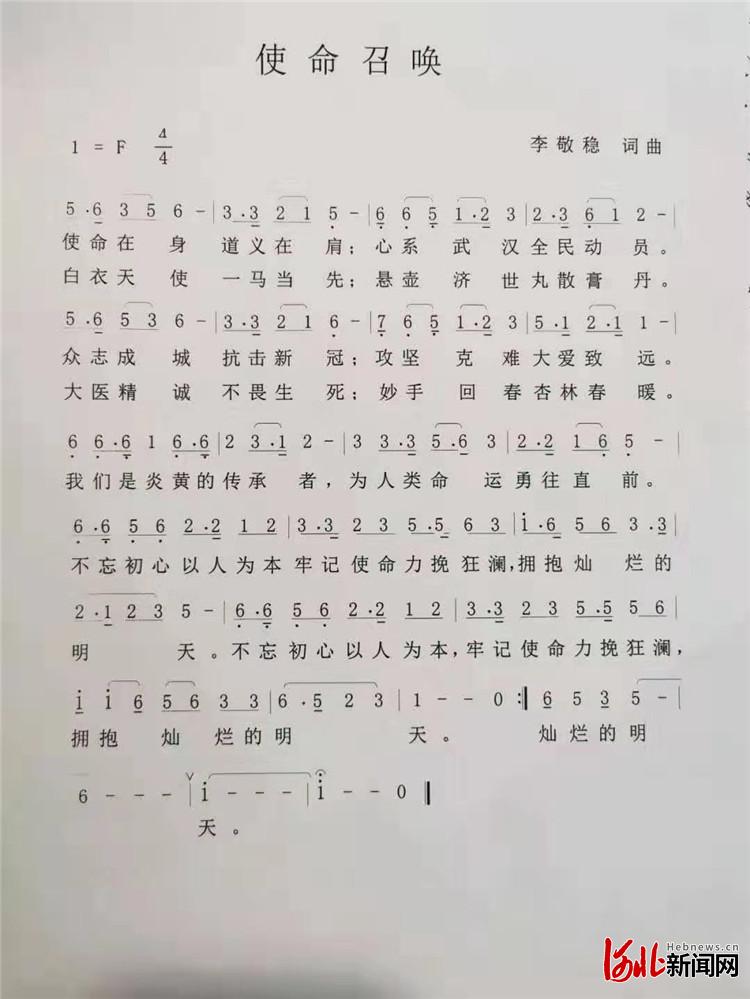 使命召唤
1 = F 4/4 李敬稳 词曲
5·6 3 5 6 - | 3·3 2 1 5 - | 6 6 5 1·2 3 | 2·3 6 1 2 - |
使命在 身 道义在 肩；心系 武 汉全民动 员。
白衣天 使 一马当 先；悬壶 济 世丸散膏 丹。
5·6 5 3 6 - | 3·3 2 1 6 - | 7 6 5 1·2 3 | 5·1 2 1 - |
众志成 城 抗击新 冠；攻坚 克 难大爱致 远。
大医精 诚 不畏生 死；妙手 回 春杏林春 暖。
6 6·6 1 6·6 | 2 3·1 2 - | 3 3·3 5·6 3 | 2·2 1 6 5 - |
我们是炎黄的传承 者，为人类命 运勇往直 前。
6·6 5 6 2·2 1 2 | 3·3 2 3 5·5 6 3 | i·6 5 6 5 3·3 |
不忘初心以人为本牢记使命力挽狂澜，拥抱灿 烂的
2·1 2 3 5 - | 6·6 5 6 2·2 1 2 | 3·3 2 3 5·5 5 6 |
明 天。不忘初心以人为本，牢记使命力挽狂澜，
i i 6 5 6 3 3 | 6·5 2 3 | 1 - - 0 :‖ 6 5 3 5 - |
拥抱 灿 烂的明 天。 灿烂的明
6 - - - | i - - - | i - - 0 ‖
天。
Hebnews.cn
河北新闻网